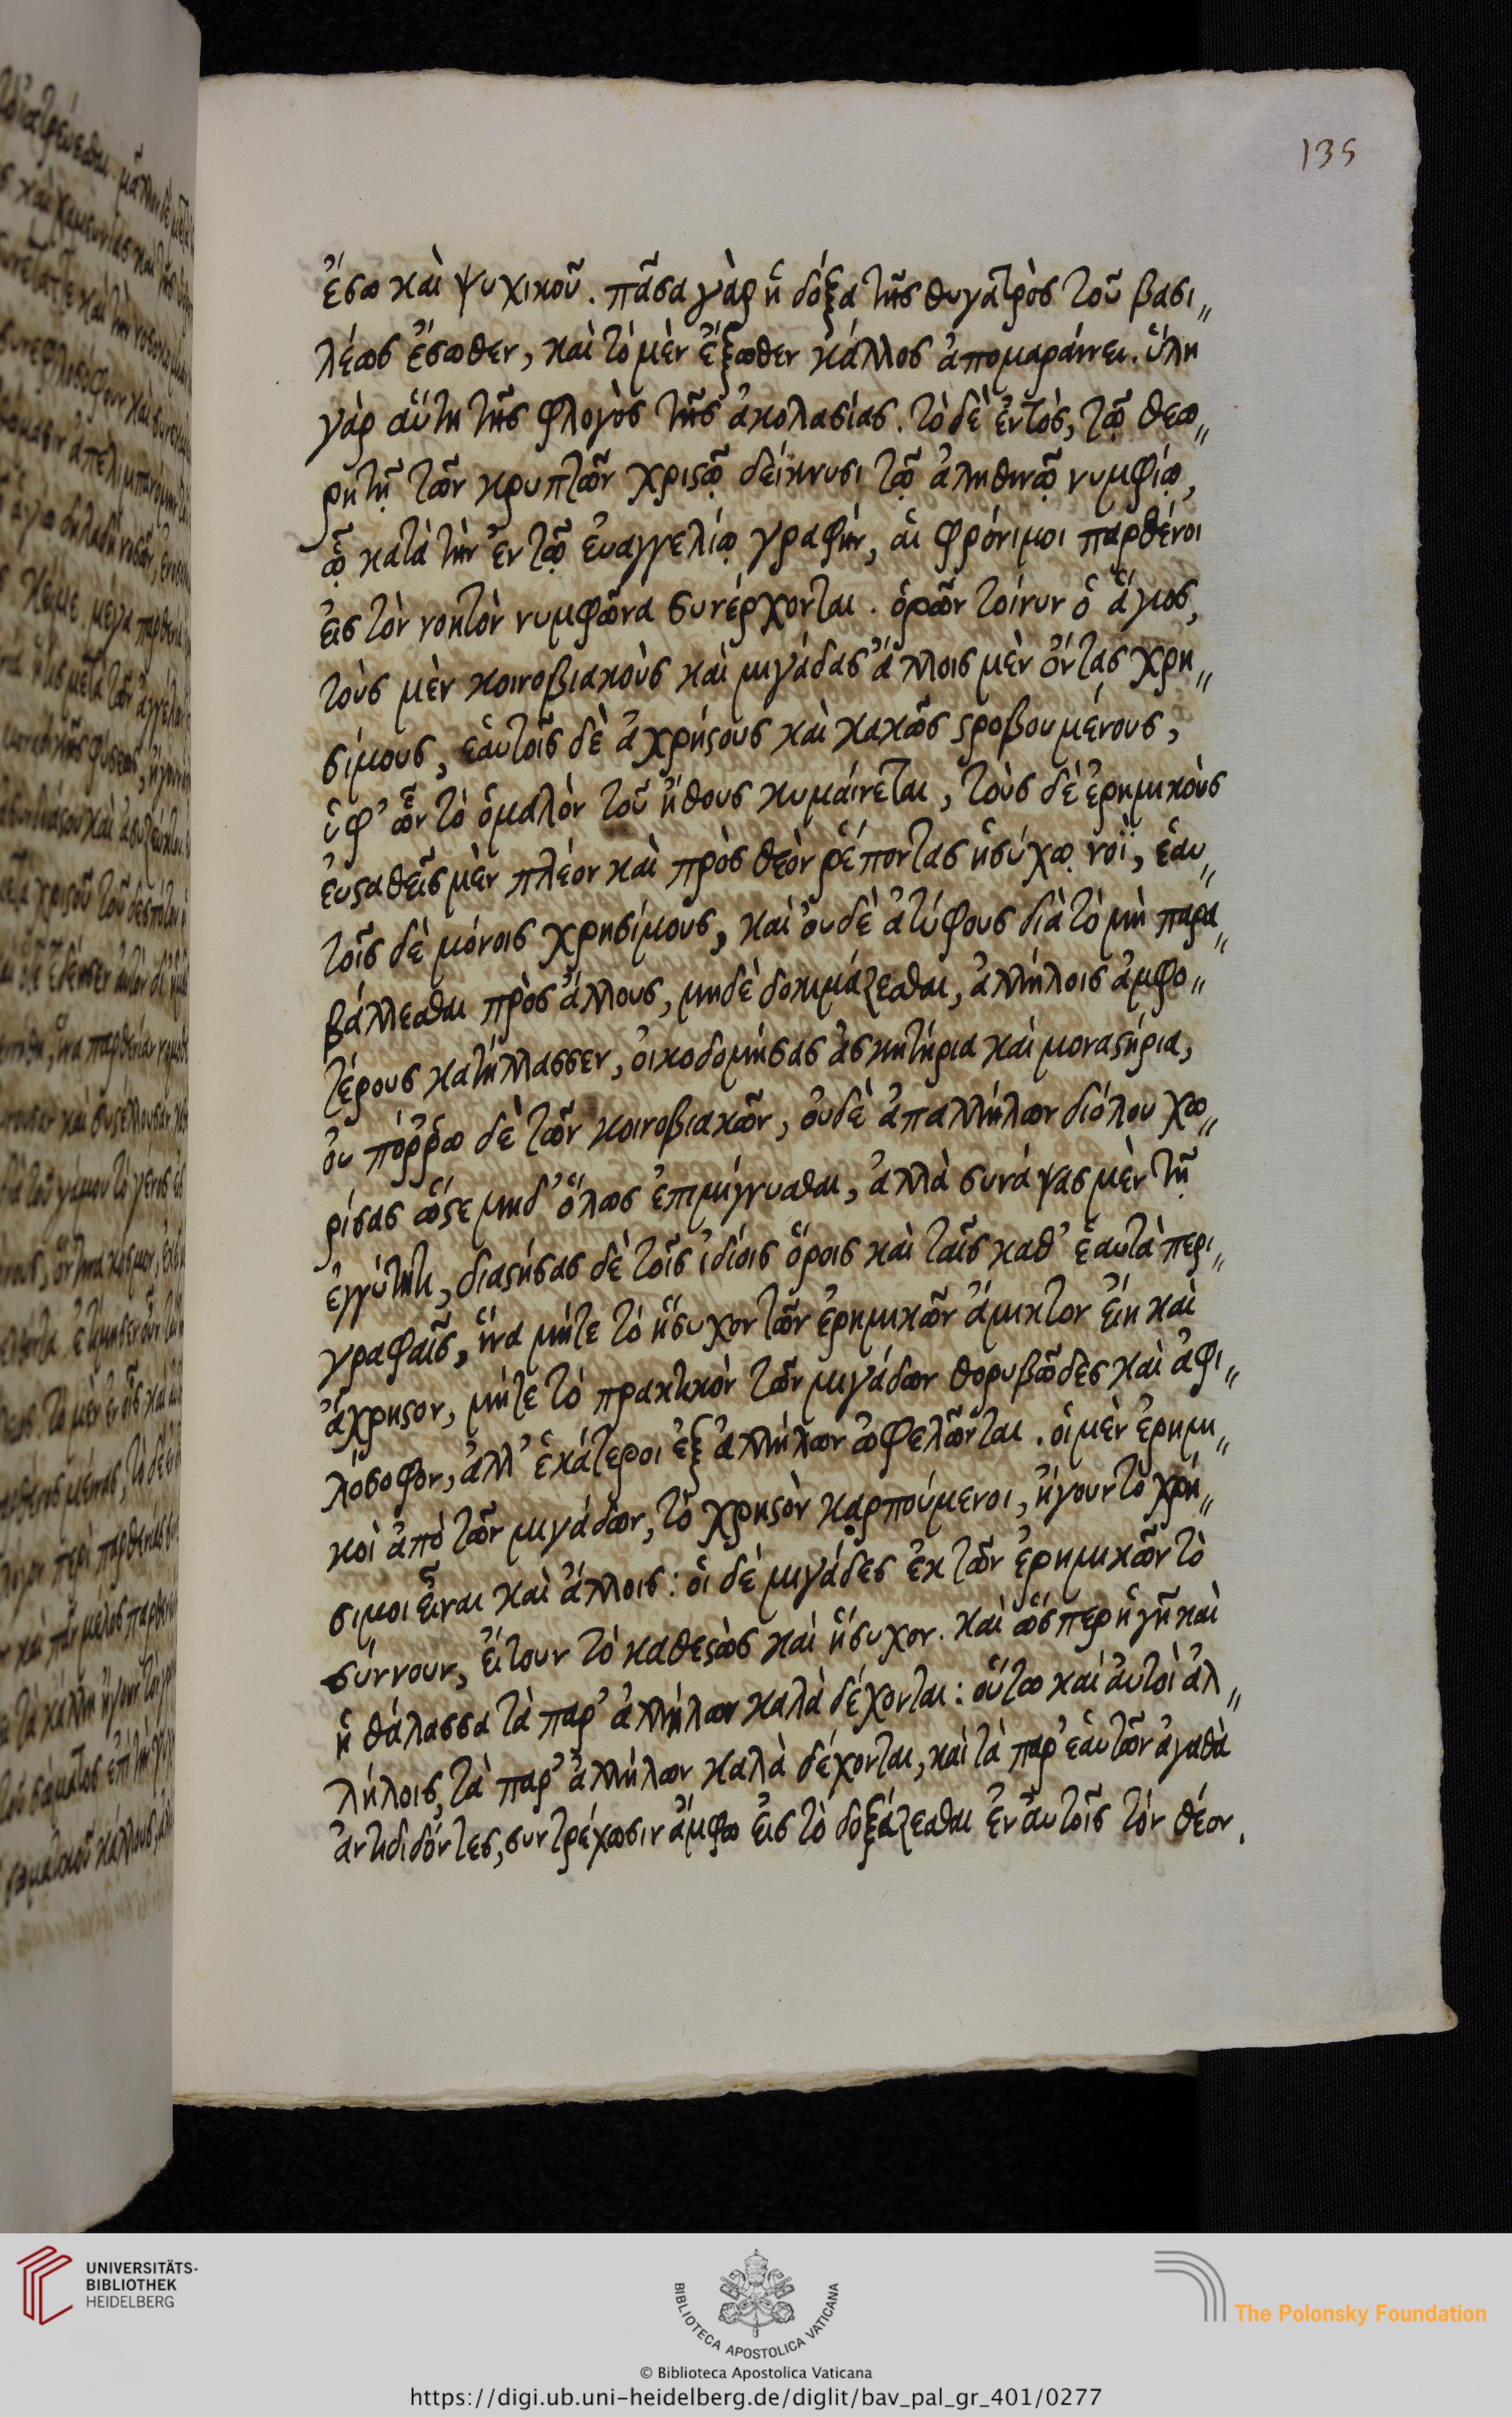 135
ἔσω καὶ ψυχικοῦ. πᾶσα γὰρ ἡ δόξα τῆς θυγατρὸς τοῦ βασι〃
λέως ἔσωθεν, καὶ τὸ μὲν ἔξωθεν κάλλος ἀπομαράννει. ὕλη
γὰρ αὕτη τῆς φλογὸς τῆς ἀκολασίας. τὸ δὲ ἐντὸς, τῷ θεω〃
ρητῇ τῶν κρυπτῶν χριϛῷ δείκνυσι τῷ ἀληθινῷ νυμφίῳ,
ᾧ κατὰ τὴν ἐν τῷ ἐυαγγελίῳ γραφὴν, αἱ φρόνιμοι παρθένοι
εἰς τὸν νοητὸν νυμφῶνα συνέρχονται. ὁρῶν τοίνυν ὁ ἅγιος,
τοὺς μὲν κοινοβιακοὺς καὶ μιγάδας ἄλλοις μὲν ὄντας χρη〃
σίμους, ἑαυτοῖς δὲ ἀχρήϛους καὶ κακῶς ϛροβουμένους,
ὑφ’ ὧν τὸ ὁμαλὸν τοῦ ἤθους κυμαίνεται, τοὺς δὲ ἐρημικοὺς
ἐυϛαθεῖς μὲν πλέον καὶ πρὸς θεὸν ῥέποντας ἡσύχῳ νοῒ, ἑαυ〃
τοῖς δὲ μόνοις χρησίμους, καὶ ὀυδὲ ἀτύφους διὰ τὸ μὴ παρα〃
βάλλεσθαι πρὸς ἄλλους, μηδὲ δοκιμάζεσθαι, ἀλλήλοις ἀμφο〃
τέρους κατήλλασσεν, ὀικοδομήσας ἀσκητήρια καὶ μοναϛήρια,
ὀυ πόῤῥω δὲ τῶν κοινοβιακῶν, ὀυδὲ ἀπαλλήλων διόλου χω〃
ρίσας ὥϛε μηδ’ ὅλως ἐπιμίγνυσθαι, ἀλλὰ συνάψας μὲν τῇ
ἐγγύτητι, διαϛήσας δὲ τοῖς ἰδίοις ὅροις καὶ ταῖς καθ’ ἑαυτὰ περι〃
γραφαῖς, ἵνα μήτε τὸ ἥσυχον τῶν ἐρημικῶν ἄμικτον εἴη καὶ
ἄχρηϛον, μήτε τὸ πρακτικὸν τῶν μιγάδων θορυβῶδες καὶ ἀφι〃
λόσοφον, ἀλλ’ ἑκάτεροι ἐξ ἀλλήλων ὠφελῶνται. οἱ μὲν ἐρημι〃
κοὶ ἀπὸ τῶν μιγάδων, τὸ χρηϛὸν καρπούμενοι, ἤγουν τὸ χρή〃
σιμοι εἶναι καὶ ἄλλοις: οἱ δὲ μιγάδες ἐκ τῶν ἐρημικῶν τὸ
σύννουν, εἴτουν τὸ καθεϛὼς καὶ ἥσυχον. καὶ ὥσπερ ἡ γῆ καὶ
ἡ θάλασσα τὰ παρ’ ἀλλήλων καλὰ δέχονται: οὕτω καὶ ἀυτοὶ ἀλ〃
λήλοις, τὰ παρ’ ἀλλήλων καλὰ δέχονται, καὶ τὰ παρ’ ἑαυτῶν ἀγαθὰ
ἀντιδιδόντες, συντρέχωσιν ἄμφω εἰς τὸ δοξάζεσθαι ἐν ἀυτοῖς τὸν θεόν.
UNIVERSITÄTS-
BIBLIOTHEK
HEIDELBERG
BIBLIOTECA APOSTOLICA VATICANA
The Polonsky Foundation
© Biblioteca Apostolica Vaticana
https://digi.ub.uni-heidelberg.de/diglit/bav_pal_gr_401/0277